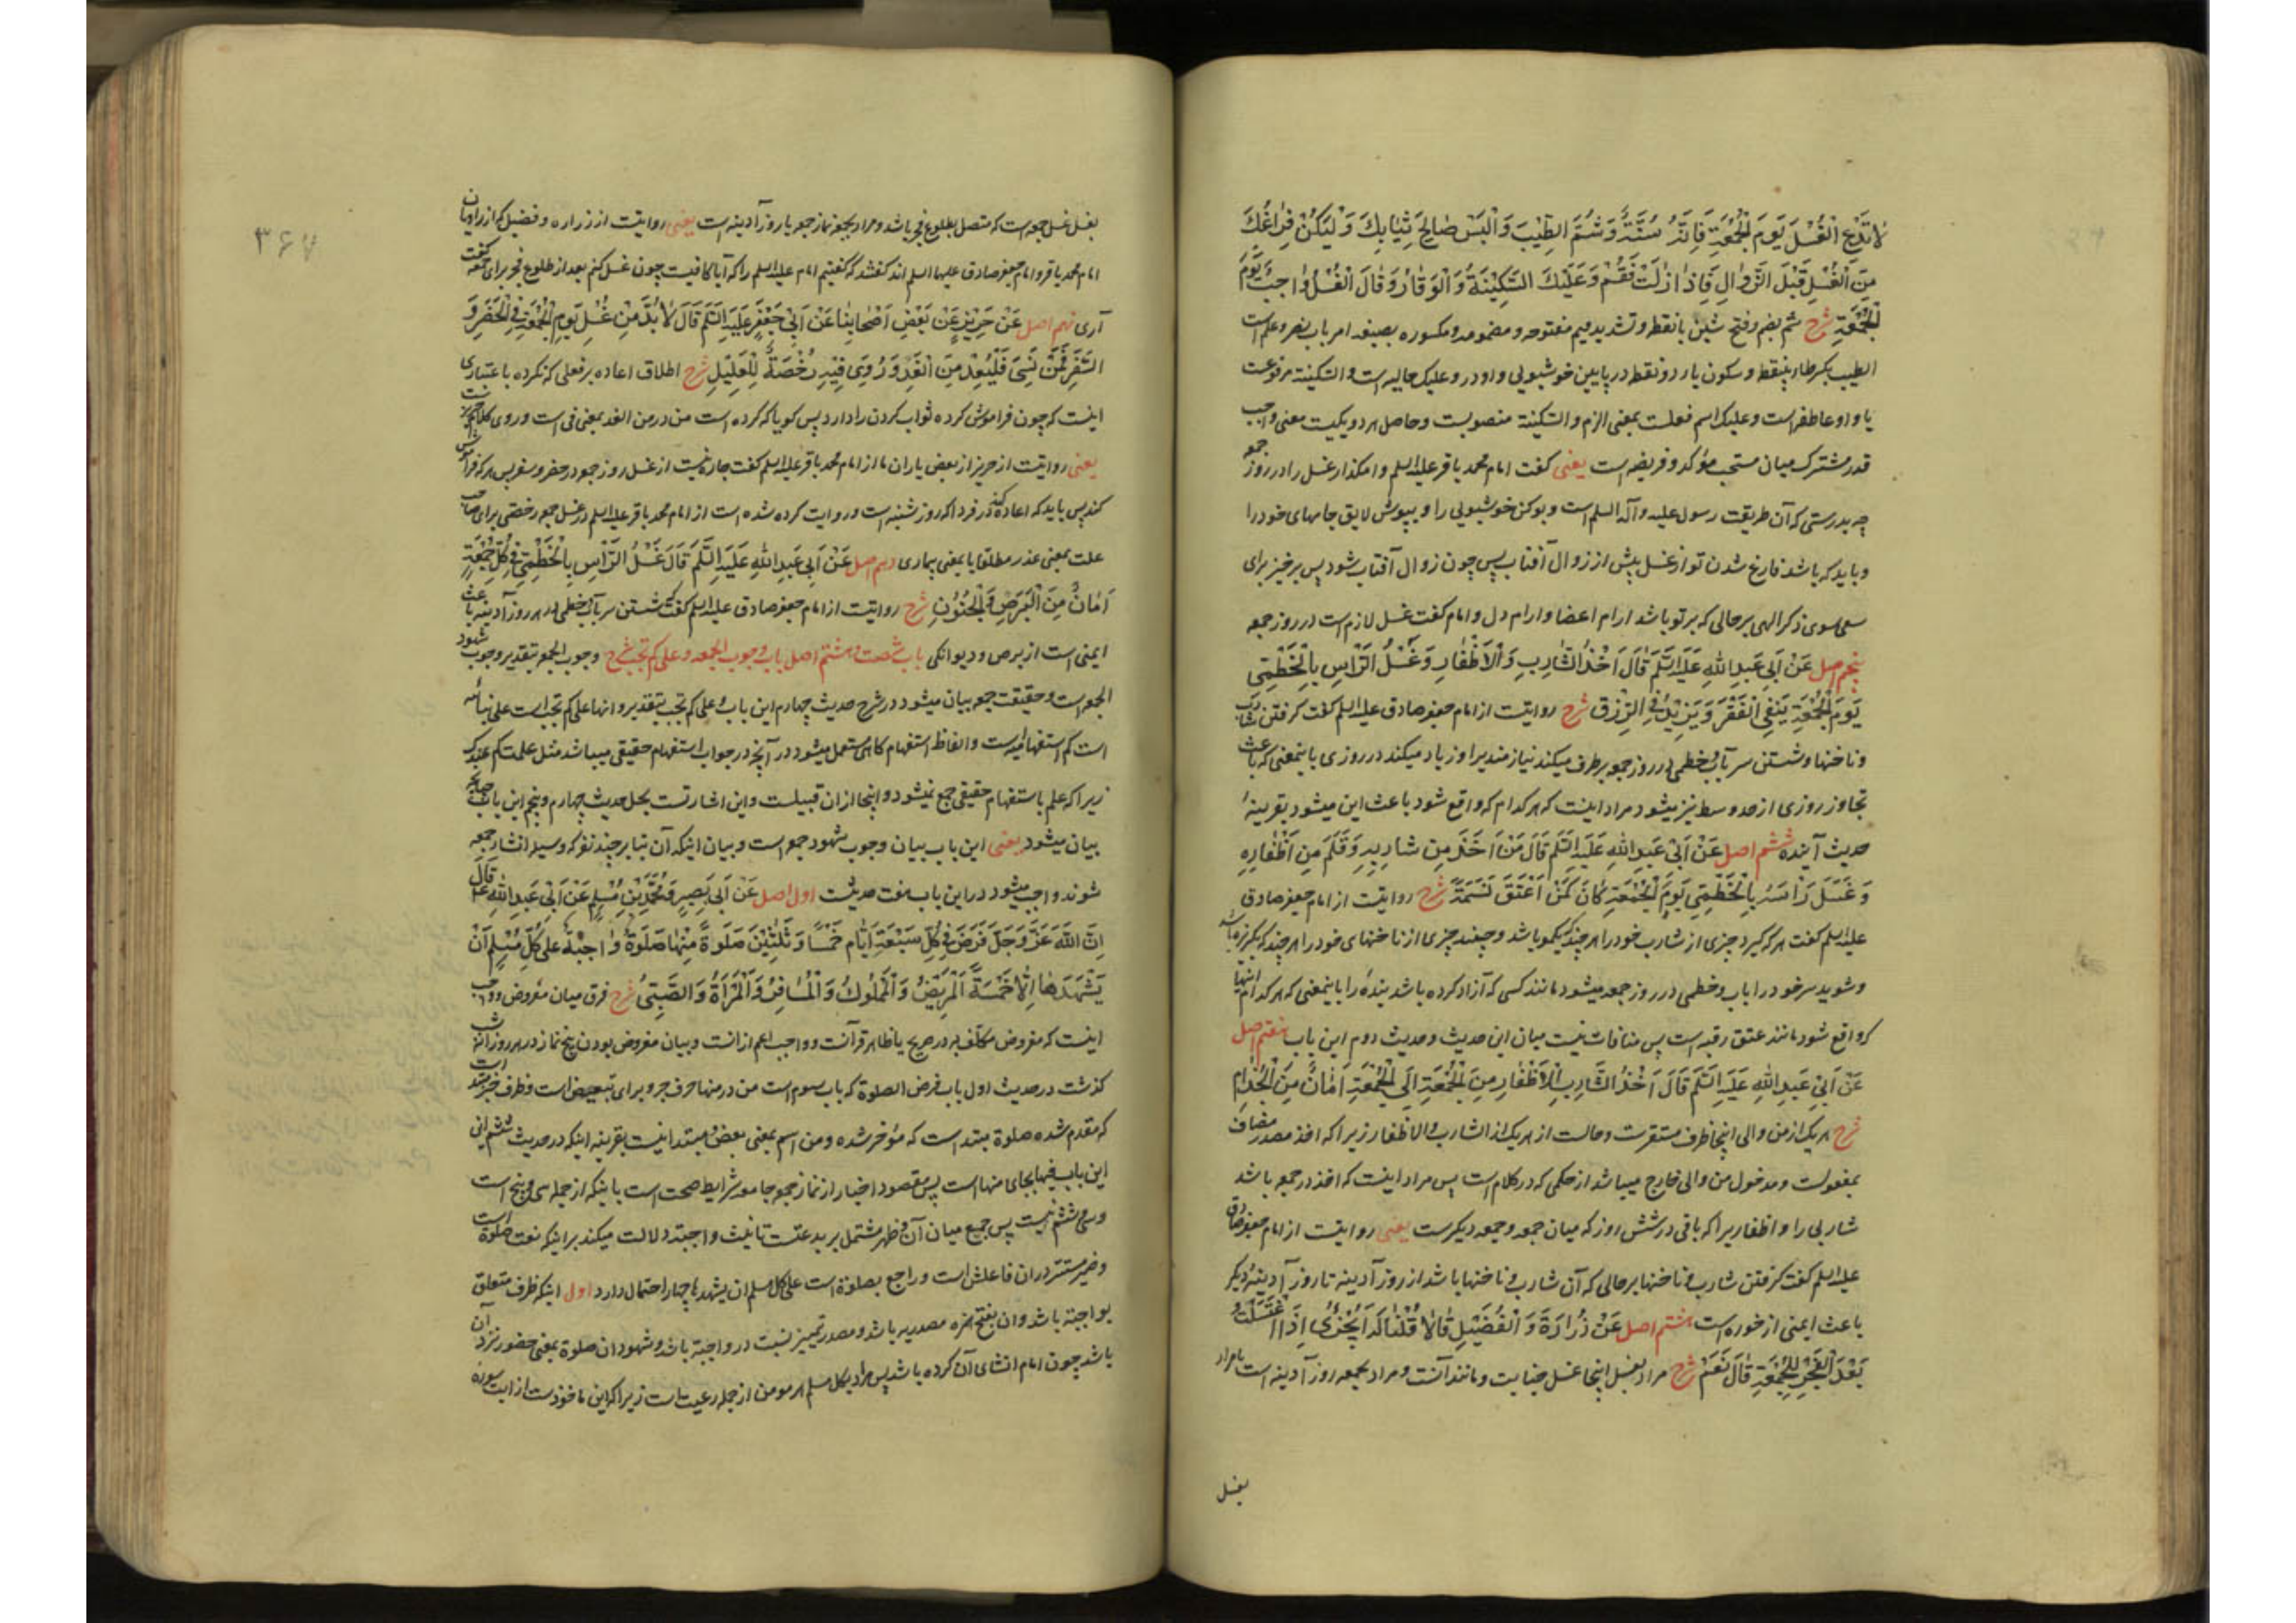 لَا تَدَعِ الْغُسْلَ يَوْمَ الْجُمُعَةِ فَاِنَّهُ سُنَّةٌ وَشُمَّ الطِّيْبَ وَالْبَسْ صَالِحَ ثِيَابِكَ وَلْيَكُنْ فَرَاغُكَ
مِنَ الْغُسْلِ قَبْلَ الزَّوَالِ فَاِذَا زَالَتْ فَقُمْ وَعَلَيْكَ السَّكِيْنَةُ وَالْوَقَارُ وَقَالَ الْغُسْلُ وَاجِبٌ يَوْمَ
الْجُمُعَةِ شرح شم بضم وفتح شین بانقطه وتشدید میم مفتوحه ومضمومه ومکسوره بصیغه امر باب نصر وعلم است
الطیب بکسر طاء بینقطه وسکون یاء دو نقطه در پایین خوشبویی و واو در وعلیک حالیه است والسکینة مرفوعست
یا واو عاطفه است وعلیک اسم فعلست بمعنی الزم والسکینة منصوبست وحاصل هر دو یکیست معنی واجب
قدر مشترک میان مستحب مؤکد و فریضه است یعنی گفت امام محمد باقر علیه السلم وامکذار غسل را در روز جمعه
چه بدرستی که آن طریقت رسول علیه وآله السلم است و بو کن خوشبویی را و بپوش لایق جامهای خود را
و باید که باشد فارغ شدن تو از غسل پیش از زوال آفتاب پس چون زوال آفتاب شود پس برخیز برای
سعی بسوی ذکر الهی بر حالی که بر تو باشد ارام اعضا وارام دل و امام گفت غسل لازم است در روز جمعه
پنجم اصل عَنْ اَبِي عَبْدِ اللهِ عَلَيْهِ السَّلَمُ قَالَ اَخْذُ الشَّارِبِ وَالْاَظْفَارِ وَغَسْلُ الرَّاْسِ بِالْخَطْمِيِّ
يَوْمَ الْجُمُعَةِ يَنْفِي الْفَقْرَ وَيَزِيْدُ فِي الرِّزْقِ شرح روایتست از امام جعفر صادق علیه السلم گفت گرفتن شارب
وناخنها وشستن سر بآب خطمی در روز جمعه برطرف میکند نیازمندیرا و زیاد میکند در روزی باینمعنی که باعث
تجاوز روزی از حد وسط نیز میشود مراد اینست که هر کدام که واقع شود باعث این میشود بقرینهٔ
حدیث آینده ششم اصل عَنْ اَبِي عَبْدِ اللهِ عَلَيْهِ السَّلَمُ قَالَ مَنْ اَخَذَ مِنْ شَارِبِهِ وَقَلَّمَ مِنْ اَظْفَارِهِ
وَغَسَلَ رَاْسَهُ بِالْخَطْمِيِّ يَوْمَ الْجُمُعَةِ كَانَ كَمَنْ اَعْتَقَ نَسَمَةً شرح روایتست از امام جعفر صادق
علیه السلم گفت هر که گیرد چیزی از شارب خود را هر چند که یکمو باشد وچیند چیزی از ناخنهای خود را هر چند که یکریزه باشد
وشوید سر خود را باب وخطمی در روز جمعه میشود مانند کسی که آزاد کرده باشد بنده را باینمعنی که هر کدام اینها
که واقع شود مانند عتق رقبه است پس منافات نیست میان این حدیث وحدیث دوم این باب هفتم اصل
عَنْ اَبِي عَبْدِ اللهِ عَلَيْهِ السَّلَمُ قَالَ اَخْذُ الشَّارِبِ وَالْاَظْفَارِ مِنَ الْجُمُعَةِ اِلَى الْجُمُعَةِ اَمَانٌ مِنَ الْجُذَامِ
شرح هر یک از من والی اینجا ظرف مستقرست وحالست از هر یک از الشارب والاظفار زیرا که اخذ مصدر مضاف
بمفعولست ومدخول من والی خارج میباشد از حکمی که در کلام است پس مراد اینست که اخذ در جمعه باشد
شاربی را واظفاریرا که باقی در شش روز که میان جمعه وجمعه دیگرست یعنی روایتست از امام جعفر صادق
علیه السلم گفت گرفتن شارب وناخنها بر حالی که آن شارب وناخنها باشد از روز آدینه تا روز آدینهٔ دیگر
باعث ایمنی از خوره است هشتم اصل عَنْ زُرَارَةَ وَالْفُضَيْلِ قَالَا قُلْنَا لَهُ اَيُجْزِي اِذَا اغْتَسَلْتُ
بَعْدَ الْفَجْرِ لِلْجُمُعَةِ قَالَ نَعَمْ شرح مراد بغسل اینجا غسل جنابت ومانند آنست ومراد بجمعه روز آدینه است یا مراد
بغسل
۳۶۷
بغسل غسل جمعه است که متصل بطلوع فجر باشد ومراد بجمعه نماز جمعه یا روز آدینه است یعنی روایتست از زراره وفضیل که از راویان
امام محمد باقر وامام جعفر صادق علیهما السلم اند گفتند که گفتیم امام علیه السلم را که آیا کافیست چون غسل کنم بعد از طلوع فجر برای جمعه گفت
آری نهم اصل عَنْ حَرِيْزٍ عَنْ بَعْضِ اَصْحَابِنَا عَنْ اَبِي جَعْفَرٍ عَلَيْهِ السَّلَمُ قَالَ لَا بُدَّ مِنْ غُسْلِ يَوْمِ الْجُمُعَةِ فِي الْحَضَرِ وَ
السَّفَرِ فَمَنْ نَسِيَ فَلْيُعِدْ مِنَ الْغَدِ وَرُوِيَ فِيْهِ رُخْصَةٌ لِلْعَلِيْلِ شرح اطلاق اعاده بر فعلی که نکرده باعتباری
اینست که چون فراموش کرده ثواب کردن را دارد پس گویا که کرده است من در من الغد بمعنی فی است وروی کلام
یعنی روایتست از حریز از بعض یاران ما از امام محمد باقر علیه السلم گفت چاره نیست از غسل روز جمعه در حضر وسفر پس هر که فراموش
کند پس باید که اعاده کند در فردا که روز شنبه است وروایت کرده شده است از امام محمد باقر علیه السلم در غسل جمعه رخصتی برای صاحب
علت بمعنی عذر مطلقا یا بمعنی بیماری دهم اصل عَنْ اَبِي عَبْدِ اللهِ عَلَيْهِ السَّلَمُ قَالَ غَسْلُ الرَّاْسِ بِالْخَطْمِيِّ فِي كُلِّ جُمُعَةٍ
اَمَانٌ مِنَ الْبَرَصِ وَالْجُنُوْنِ شرح روایتست از امام جعفر صادق علیه السلم گفت که شستن سر بآب خطمی در هر روز آدینه باعث
ایمنی است از برص ودیوانگی باب شصت وهشتم اصل باب وجوب الجمعه وعلی کم تجب شرح وجوب الجمعه بتقدیر وجوب شهود
الجمعه است وحقیقت جمعه بیان میشود در شرح حدیث چهارم این باب وعلی کم تجب بتقدیر وانها علی کم تجب است
است کم استفهامیه است والفاظ استفهام گاهی مستعمل میشود در آنچه در جواب استفهام حقیقی میباشد مثل علمت کم عندک
زیرا که علم با استفهام حقیقی جمع نمیشود واینجا از ان قبیلست واین اشارتست بحل حدیث چهارم وپنجم این باب چنانچه
بیان میشود یعنی این باب بیان وجوب شهود جمعه است وبیان اینکه آن بنا بر چند نفر که وسیله انشاء جمعه
شوند واجب میشود در این باب هفت حدیثست اول اصل عَنْ اَبِي بَصِيْرٍ وَمُحَمَّدِ بْنِ مُسْلِمٍ عَنْ اَبِي عَبْدِ اللهِ ع قَالَ
اِنَّ اللهَ عَزَّ وَجَلَّ فَرَضَ فِي كُلِّ سَبْعَةِ اَيَّامٍ خَمْسًا وَثَلٰثِيْنَ صَلٰوةً مِنْهَا صَلٰوةٌ وَاجِبَةٌ عَلٰى كُلِّ مُسْلِمٍ اَنْ
يَشْهَدَهَا اِلَّا خَمْسَةً الْمَرِيْضُ وَالْمَمْلُوكُ وَالْمُسَافِرُ وَالْمَرْاَةُ وَالصَّبِيُّ شرح فرق میان مفروض وواجب
اینست که مفروض مکلف به در صریح یا ظاهر قرآنست وواجب اعم از انست وبیان مفروض بودن پنج نماز در هر روز
گذشت در حدیث اول باب فرض الصلوة که باب سوم است من در منها حرف جر وبرای تبعیض است وظرف خبر مبتدا
که مقدم شده صلوة مبتدا است که مؤخر شده ومن اسم بمعنی بعض ومبتدا نیست بقرینه اینکه در حدیث ششم
این باب فیها بجای منها است پس مقصود اخبار از نماز جمعه جامع شرایط صحت است باینکه از جمله سی وپنج است
وسی وششم نیست پس جمع میان آن وظهر مشتمل بر بدعتست تانیث واجبة دلالت میکند بر اینکه نعت صلوة است
وضمیر مستتر در ان فاعلش است وراجع بصلوة است علی کل مسلم ان یشهدها چهار احتمال دارد اول اینکه ظرف متعلق
بواجبة باشد وان بفتح همزه مصدریه باشد ومصدر تمییز نسبت در واجبة باشد وشهود ان صلوة بمعنی حضور نزد آن
باشد چون امام انشای آن کرده باشد پس مراد بکل مسلم هر مومن از جمله رعیت است زیرا که این ماخوذست از ایت سوره